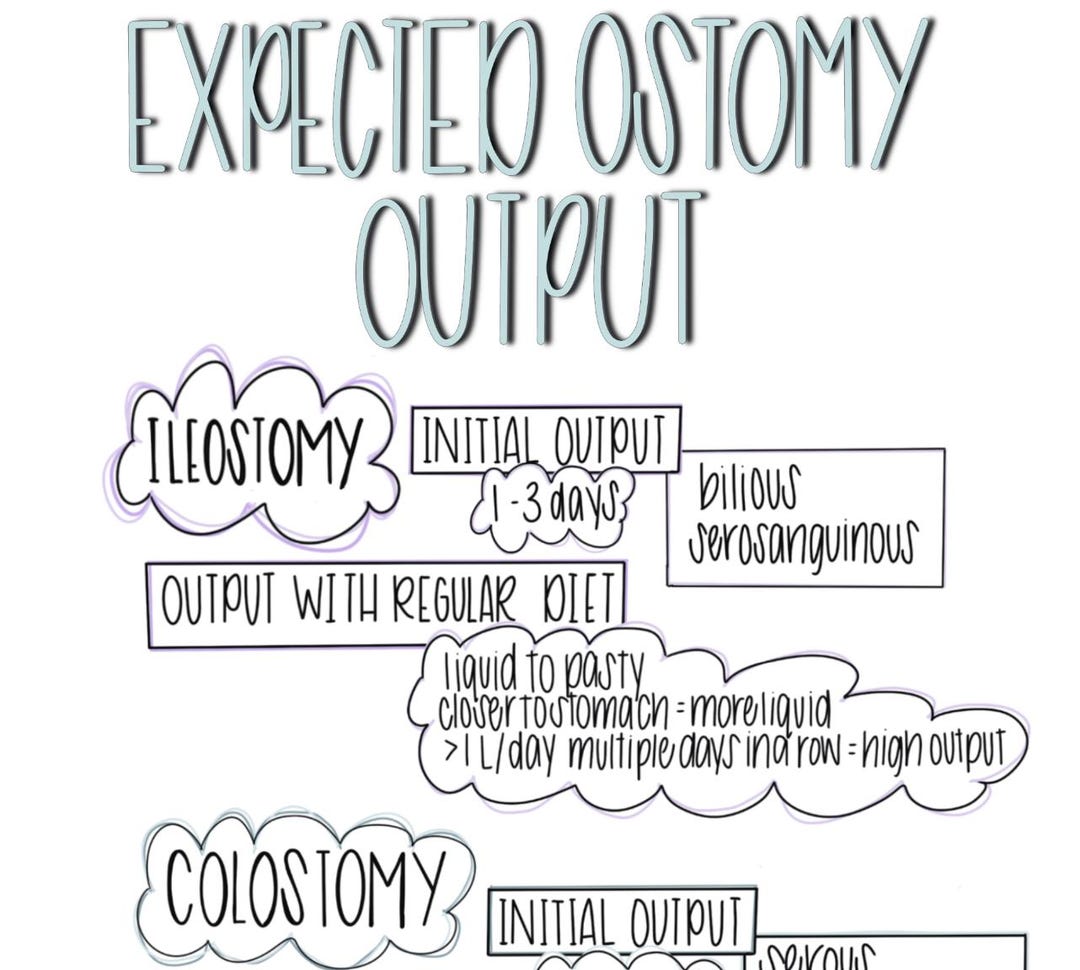 EXPECTED OSTOMY
OUTPUT
ILEOSTOMY
INITIAL OUTPUT
1-3 days
bilious
serosanguinous
OUTPUT WITH REGULAR DIET
liquid to pasty
closer to stomach = more liquid
>1 L/day multiple days in a row = high output
COLOSTOMY
INITIAL OUTPUT
serous